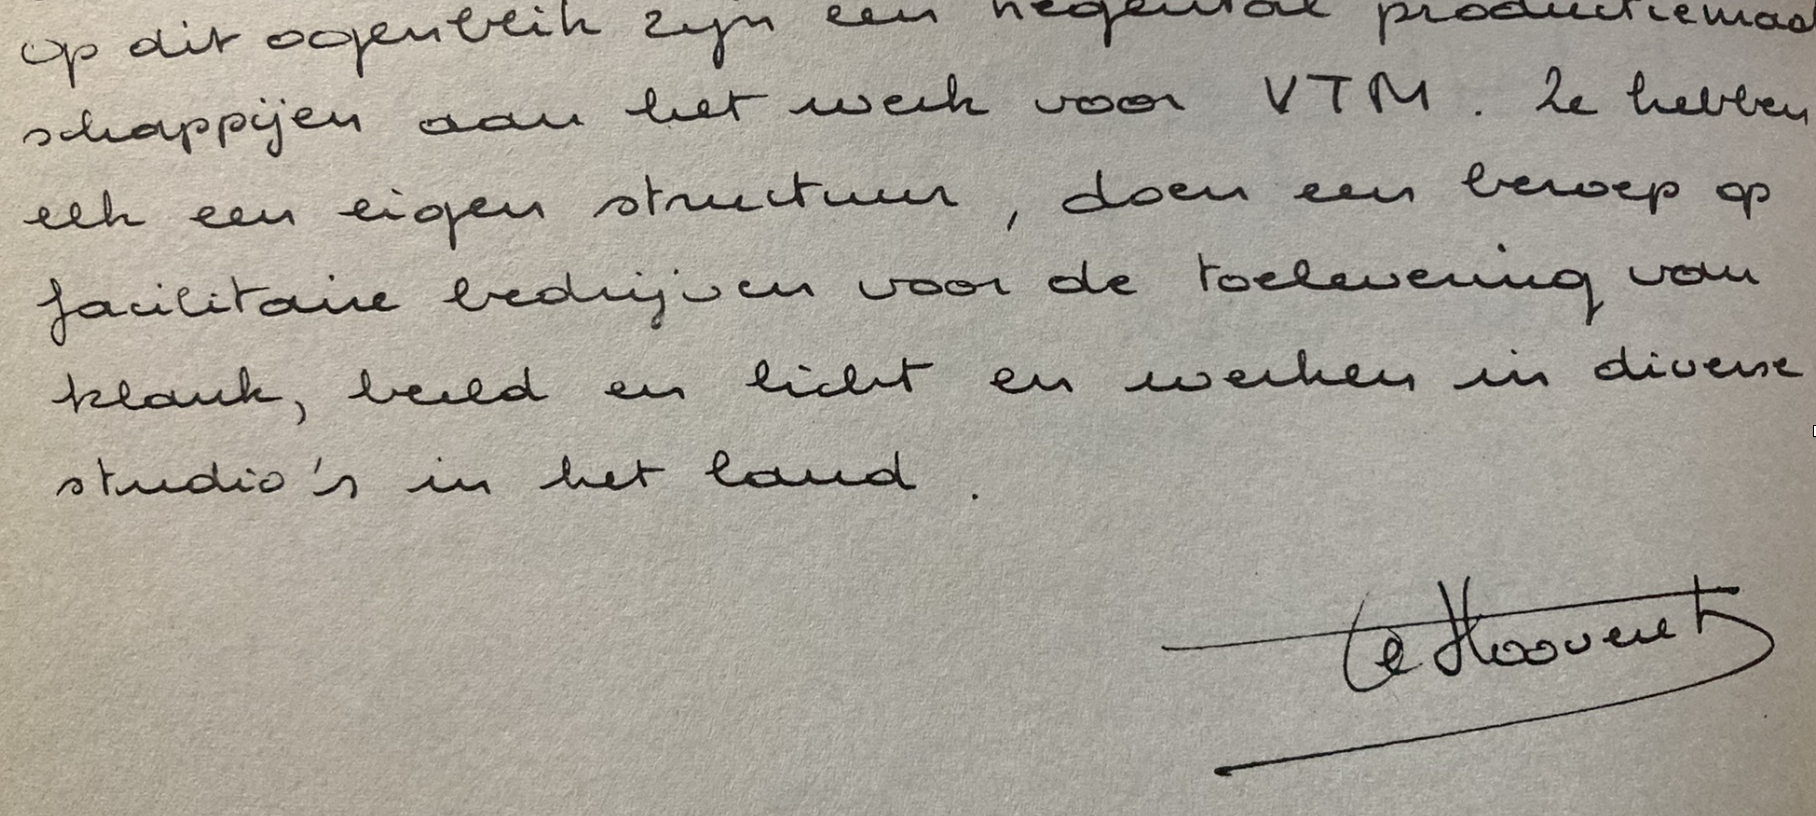 op dit ogenblik zijn een negental productiemaat
schappijen aan het werk voor VTM. Ze hebben
elk een eigen structuur, doen een beroep op
facilitaire bedrijven voor de toelevering van
klank, beeld en licht en werken in diverse
studio's in het land.